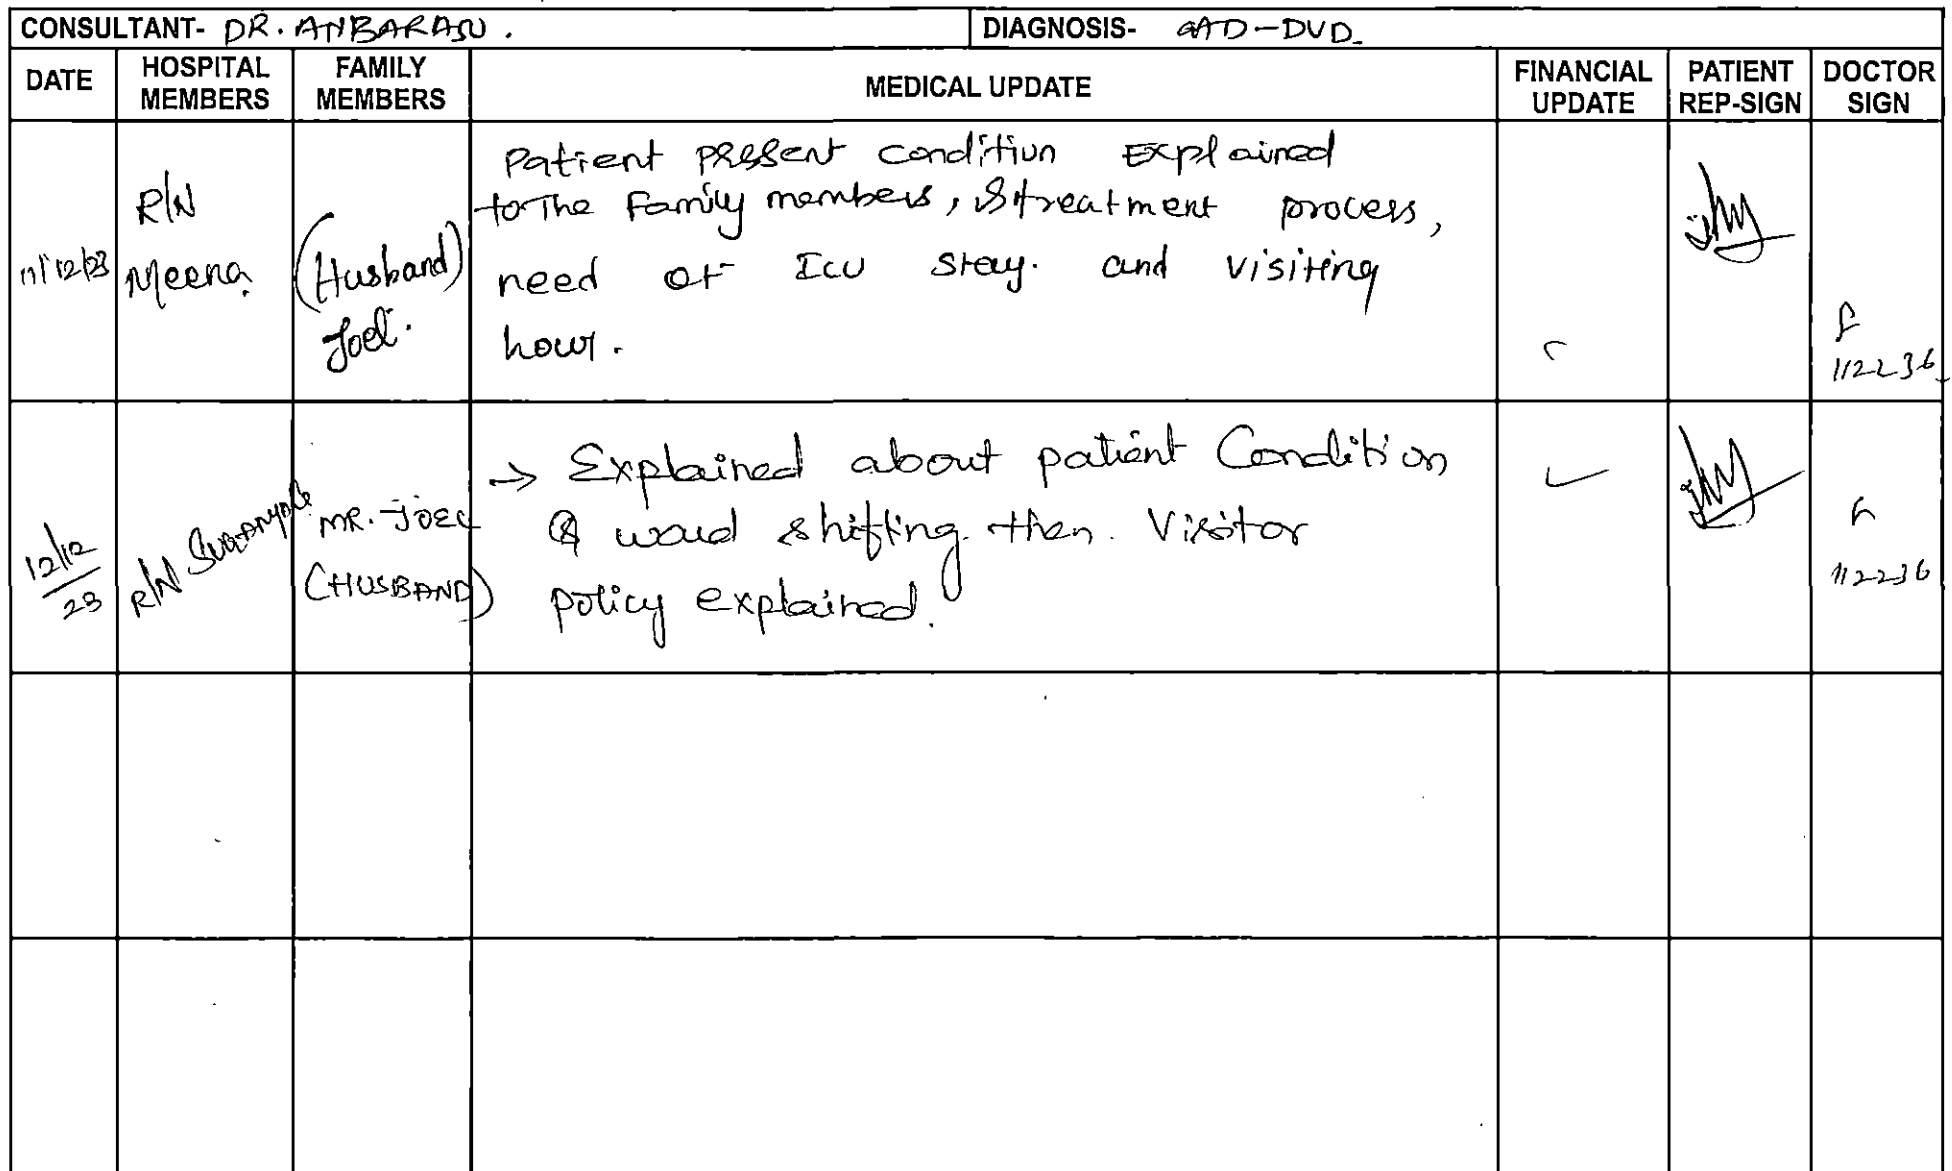 CONSULTANT- DR. ANBARASU. DIAGNOSIS- CAD-DVD
DATE HOSPITAL MEMBERS FAMILY MEMBERS MEDICAL UPDATE FINANCIAL UPDATE PATIENT REP-SIGN DOCTOR SIGN
11/12/23 R/N Meena (Husband) Joel.
Patient present condition Explained
to The Family members, & treatment process,
need of ICU stay. and visiting
hour.
112236
12/12/23 R/N MR. JOEL (HUSBAND)
→ Explained about patient Condition
& ward shifting. then. Visitor
policy explained.
112236